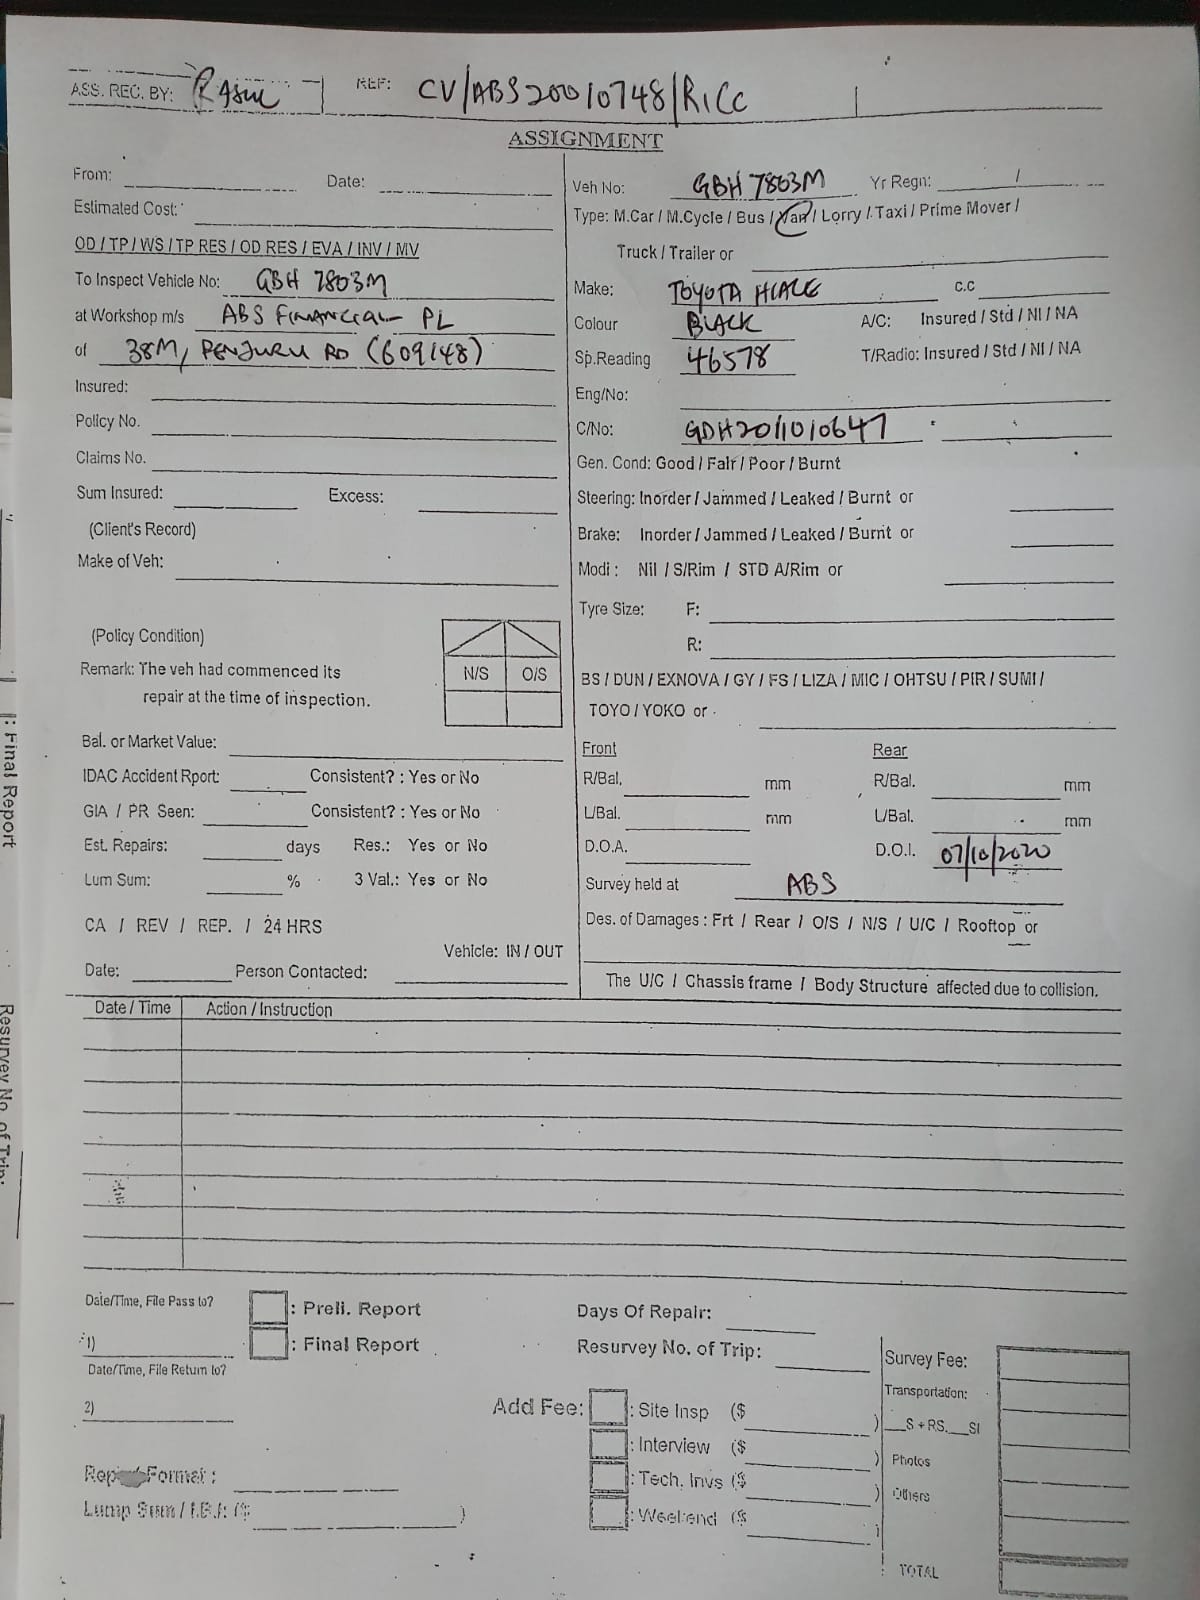 ASS. REC. BY: REF: CV/ABS20010748/R1CC
ASSIGNMENT
From: Date:
Estimated Cost:
OD / TP / WS / TP RES / OD RES / EVA / INV / MV
To Inspect Vehicle No: GBH 7803M
at Workshop m/s ABS FINANCIAL PL
of 38M, PENJURU RD (609148)
Insured:
Policy No.
Claims No.
Sum Insured: Excess:
(Client's Record)
Make of Veh:
(Policy Condition)
Remark: The veh had commenced its
repair at the time of inspection.
N/S O/S
Bal. or Market Value:
IDAC Accident Rport: Consistent? : Yes or No
GIA / PR Seen: Consistent? : Yes or No
Est. Repairs: days Res.: Yes or No
Lum Sum: % 3 Val.: Yes or No
CA / REV / REP. / 24 HRS
Vehicle: IN / OUT
Date: Person Contacted:
Veh No: GBH 7803M Yr Regn: /
Type: M.Car / M.Cycle / Bus / Van / Lorry / Taxi / Prime Mover /
Truck / Trailer or
Make: TOYOTA HIACE C.C
Colour BLACK A/C: Insured / Std / NI / NA
Sp.Reading 46578 T/Radio: Insured / Std / NI / NA
Eng/No:
C/No: GDH2011010647
Gen. Cond: Good / Fair / Poor / Burnt
Steering: Inorder / Jammed / Leaked / Burnt or
Brake: Inorder / Jammed / Leaked / Burnt or
Modi : Nil / S/Rim / STD A/Rim or
Tyre Size: F:
R:
BS / DUN / EXNOVA / GY / FS / LIZA / MIC / OHTSU / PIR / SUMI /
TOYO / YOKO or
Front Rear
R/Bal. mm R/Bal. mm
L/Bal. mm L/Bal. mm
D.O.A. D.O.I. 07/10/2020
Survey held at ABS
Des. of Damages : Frt / Rear / O/S / N/S / U/C / Rooftop or
The U/C / Chassis frame / Body Structure affected due to collision.
Date / Time Action / Instruction
Date/Time, File Pass to? : Preli. Report Days Of Repair:
1) : Final Report Resurvey No. of Trip:
Date/Time, File Return to?
2)
Add Fee: : Site Insp ($ )
: Interview ($ )
: Tech. Invs ($ )
: Weekend ($ )
Survey Fee:
Transportation:
S + RS. SI
Photos
Others
TOTAL
Format :
Lump Sum / I.B.I: ($ )
: Final Report
Resurvey No. of Trip: